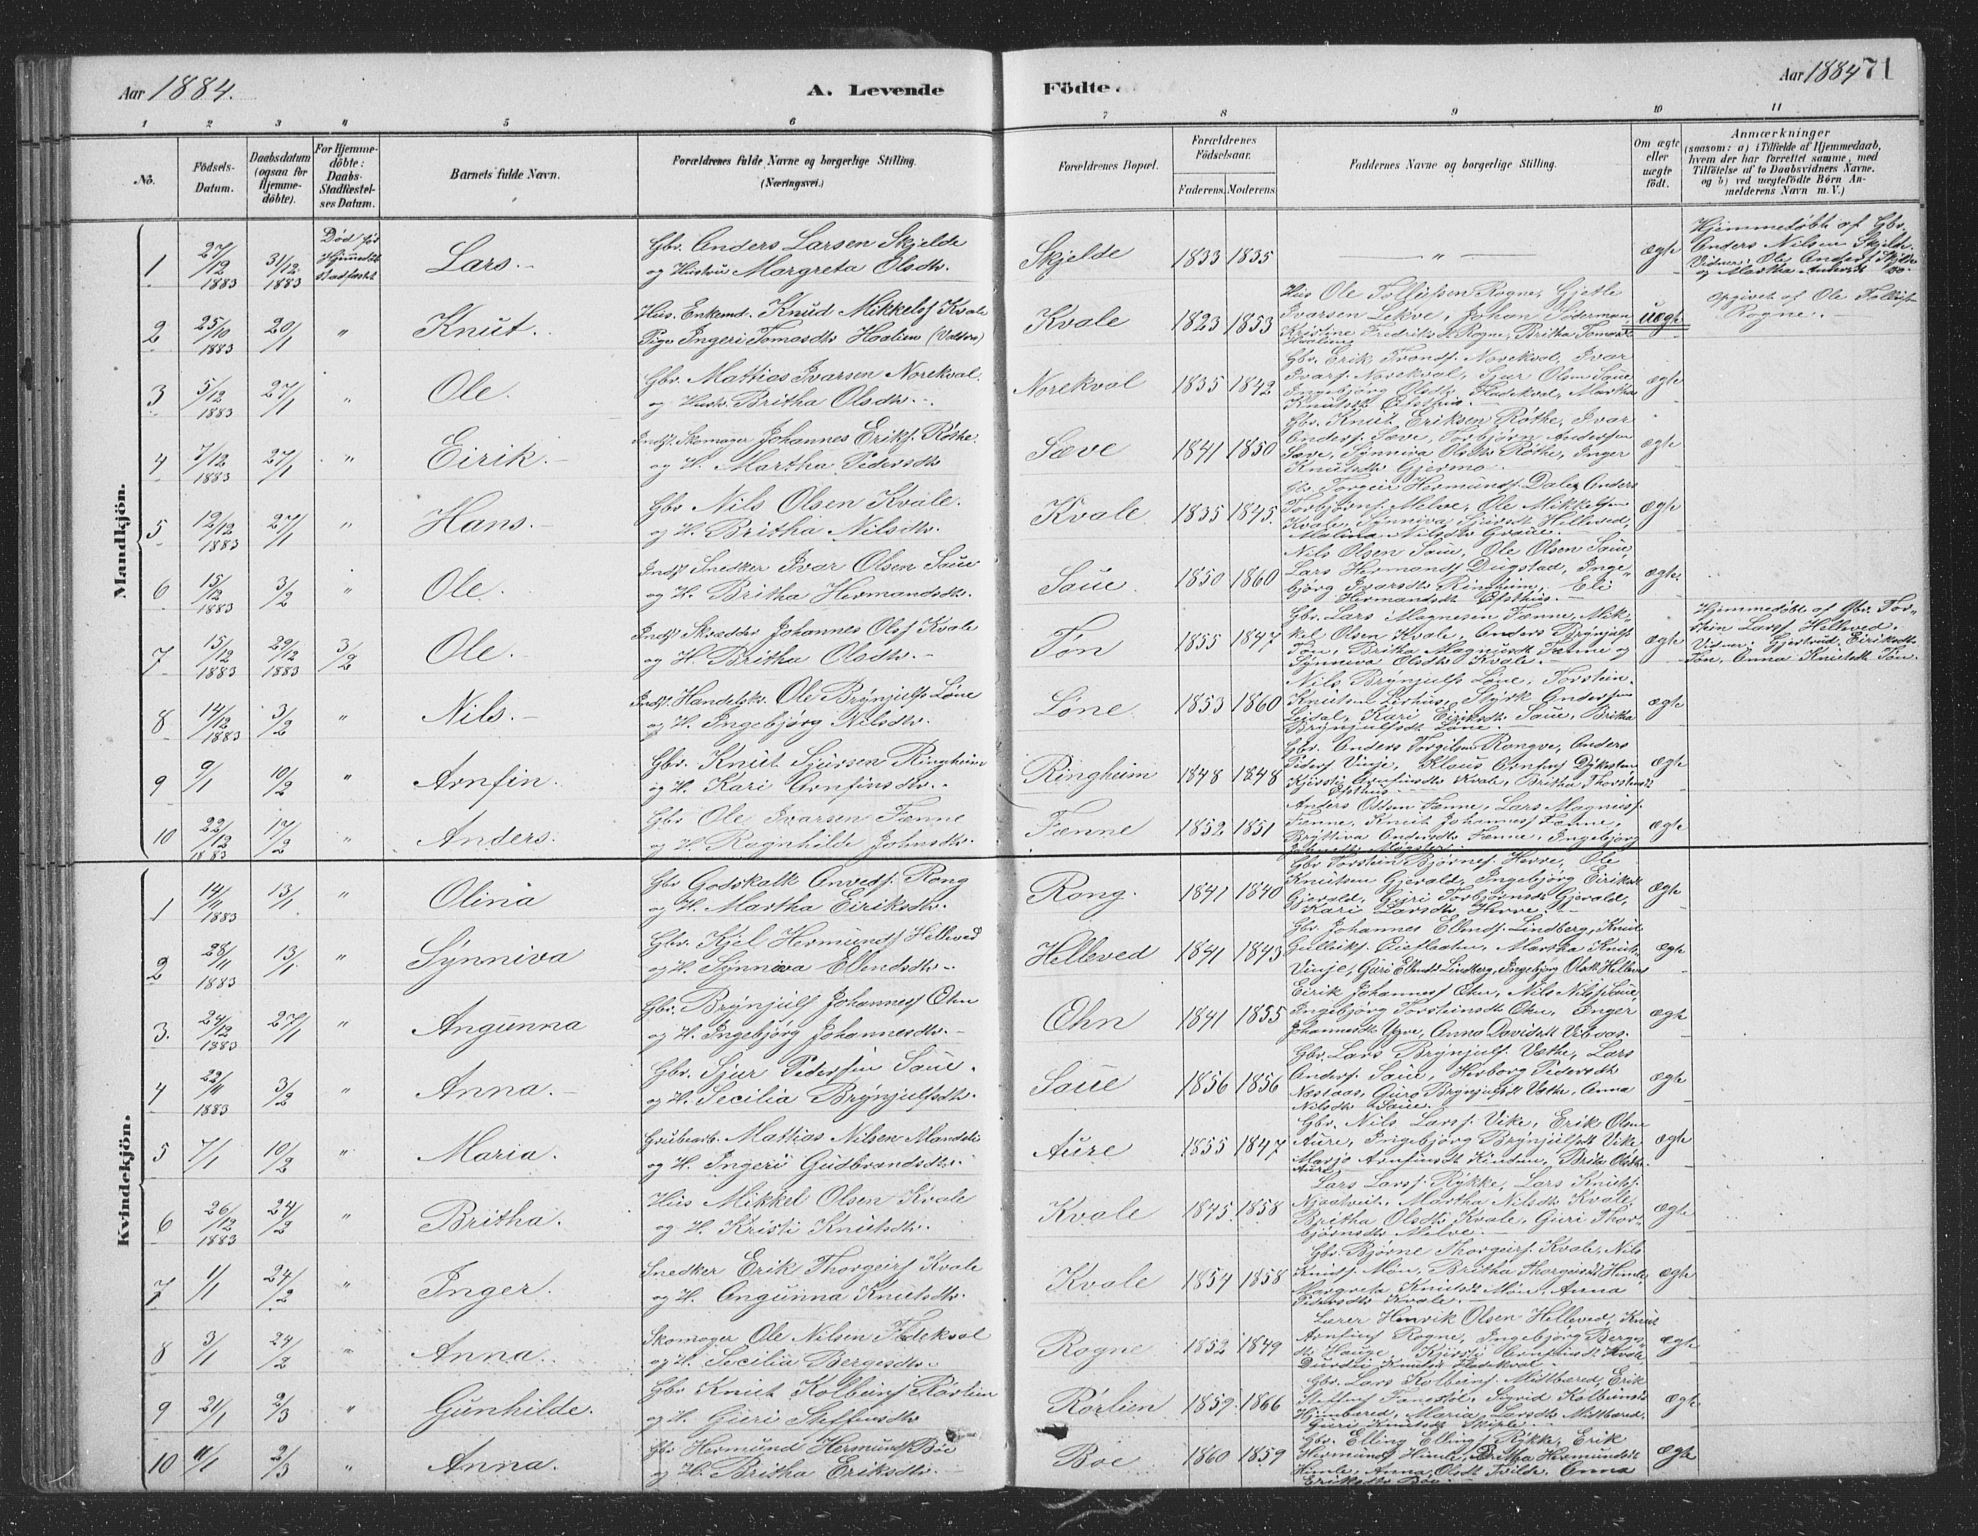 Aar 1884.
A. Levende
Födte.
Aar 1884
71
1 2 3 4 5 6 7 8 9 10 11
No.
Födsels-
Datum.
Daabsdatum
(ogsaa for
Hjemme-
döbte).
For Hjemme-
döbte:
Daabs-
Stadfæstel-
ses Datum.
Barnets fulde Navn.
Forældrenes fulde Navne og borgerlige Stilling.
(Næringsvei.)
Forældrenes Bopæl.
Forældrenes
Födselsaar.
Faderens. Moderens.
Faddernes Navne og borgerlige Stilling.
Om ægte
eller
uægte
födt.
Anmærkninger
(saasom: a) i Tilfælde af Hjemmedaab,
hvem der har forrettet samme, med
Tilföielse af to Daabsvidners Navne.
og b) ved uægtefödte Börn An-
melderens Navn m. V.)
Mandkjön.
1 27/12 1883 31/12 1883 Død før Hjemmedåb Stadfæstet Lars. Gbr. Anders Larsen Skjelde
og Hustru Margreta Olsdtr. Skjelde 1833 1835 — " — ægte Hjemmedøbt af Gbr.
Anders Nilsen Skjelde.
Vidner: Ole Anders. Skjelde
og Martha
2 25/10 1883 20/1 " Knut. Hus. Enkemd. Knud Mikkels. Kvale
Pige Ingeri Tomasdtr Haalien (Valdres) Kvale 1823 1853 Hus Ole Tollefsen Rogne, Gjetle
Ivarsen Lekve, Johan Söderman,
Kristine Fredriks d. Rogne, Britha Tomasd.
Haalien uægte Opgivet af Ole Tollefsen
Rogne.
3 5/12 1883 27/1 " Ole. Gbr. Mattias Ivarsen Norekval.
og Hustr. Britha Olsdtr. Norekval 1835 1842 Gbr. Erik Tronds. Norekval, Ivar
Ivars. Norekval, Sjur Olsen Saue,
Ingebjørg Olsdtr Fladekval, Martha
Knutsdtr ægte
4 7/12 1883 27/1 " Eirik. Inds. Skomager Johannes Eriks. Røthe.
og H. Martha Pedersdtr Sæve 1841 1850 Gbr. Knut Eriksen Røthe, Ivar
Anders. Sæve, Torbjørn Andersen
Sæve, Synniva Olsdtr Røthe, Inger
Knutsdtr Gjermo. ægte
5 12/12 1883 27/1 " Hans. Gbr. Nils Olsen Kvale.
og H. Britha Nilsdtr. Kvale. 1835 1845. Gbr. Torgeir Hermunds. Dale, Anders
Torbjørns. Melve, Ole Mikkelsen
Kvale, Synniva Sjursdtr Helleved,
Malina Nilsdtr Graue. ægte
6 15/12 1883 3/2 " Ole. Inds. Snedker Ivar Olsen Saue
og H. Britha Hermandsdtr. Saue 1850 1860 Nils Olsen Saue, Ole Olsen Saue,
Lars Hermands. Dugstad, Inge-
bjørg Ivarsdtr Ringheim, Eli
Hermandsdtr ægte.
7 15/12 1883 29/12 1883 3/2 Ole. Inds. Skrædder Johannes Ols. Kvale
og H. Britha Olsdtr. Tøn 1855 1847 Gbr. Lars Magnesen Fænne, Mik-
kel Olsen Kvale, Anders Brynjulfs.
Tøn, Britha Magnusdtr Fænne og
Synniva Olsdtr Kvale. ægte Hjemmedøbt af Gbr. Tor-
stein Lars. Helleved.
Vidner: Gjertrud Eiriksdtr
Tøn, Anna Knutsdtr Tøn.
8 14/12 1883 3/2 " Nils. Inds. Handelsk. Ole Brynjulfs. Løne
og H. Ingebjørg Nilsdtr. Løne 1853 1860 Nils Brynjulfs. Løne, Torstein
Knutsen Lirhus, Styrk Andersen
Leidal, Kari Eiriksdtr Saue, Britha
Brynjulfsdtr Løne. ægte
9 9/1 10/2 " Arnfin. Gbr. Knut Sjursen Ringheim
og H. Kari Arnfinsdtr. Ringheim 1848 1848 Gbr. Anders Torgilsen Rongve, Anders
Peders. Vinje, Klaus Arnfins. Dyksten
Kjersti Arnfinsdtr Kvale, Britha Thorstensdtr ægte
10 22/12 1883 17/2 " Anders. Gbr Ole Ivarsen Fænne
og H. Ragnhilde Johnsdtr. Fænne 1852 1851 Anders Olsen Fænne, Lars Magnus.
Fænne, Knut Johannes. Fænne,
Brittiva Andersdtr Fænne, Ingebjørg ægte
Kvindekjön.
1 14/11 1883 13/1 " Olina Gbr Godskalk Anveds. Rong
og H. Martha Eiriksdtr. Rong. 1841 1840 Gbr Torstein Bjørnes. Herre, Ole
Knutsen Gjerald, Ingebjørg Eiriksdtr
Gjerald, Guri Torbjørnsdtr Gjerald,
Kari Larsdtr Herre. ægte
2 28/11 1883 13/1 " Synniva Gbr. Kjel Hermunds. Helleved
og H. Synniva Ellendsdtr. Helleved 1841 1843 Gbr. Johannes Ellends. Lindberg, Knud
Gulleiks. , Martha Knuts.
Vinje, Guri Ellendsdtr Lindberg, Ingebjørg Olsdtr Helleved ægte
3. 24/12 1883 27/1 " Angunna Gbr. Brynjulf Johannes. Ohn
og H. Ingebjørg Johannesdtr. Ohn 1841 1855 Eirik Johannes. Ohn, Nils Nils. Saue,
Ingebjørg Torsteinsdtr Ohn, Inger
Johannesdtr Ygre, Anna Davidsdtr Urbaas. ægte
4 22/11 1883 3/2 " Anna. Gbr. Sjur Pedersen Saue.
og H. Secilia Brynjulfsdtr. Saue 1856 1856 Gbr. Lars Brynjulfs. Væthe, Lars
Anders. Saue, Herborg Pedersdtr
Næstaas, Guro Brynjulfsdtr Væthe, Anna
Nilsdtr Saue. ægte
5 7/1 10/2 " Maria. Grubearb. Mattias Nilsen Mandeli
og H. Ingeri Gudbrandsdtr. Aure 1855 1847 Gbr. Nils Lars. Vike, Erik Olsen
Aure, Ingebjørg Brynjulfsdtr Vike
Marjo Arnfinsdtr , Brita Olsdtr
Aure ægte
6 26/12 1883 24/2 " Britha. Hus Mikkel Olsen Kvale
og H. Kristi Knutsdtr. Kvale 1845 1858 Lars Lars. Rykke, Lars Knuts.
Njaatveit. Martha Nilsdtr Kvale,
Britha Olsdtr Kvale, Guri Thor-
bjørnsdtr Melve. ægte
7 1/1 24/2 " Inger. Snedker Erik Thorgeirs. Kvale
og H. Angunna Knutsdtr. Kvale 1854 1858 Gbr. Bjørne Thorgeirs. Kvale, Nils
Knuts. Møn, Britha Thorgeirsdtr Himle
Margreta Knutsdtr Møn, Anna
Pedersdtr Kvale. ægte
8 3/1 24/2 " Anna. Skomager Ole Nilsen Fladekval
og H. Secilia Bergesdtr. Rogne 1852 1849 Lærer Henrik Olsen Helleved, Knut
Arnfins. Rogne, Ingebjørg Berges-
dtr Hauge, Kjersti Arnfinsdtr Kvale
Durdei Knutsdtr Fladekval. ægte
9 21/1 2/3 " Gunhilde. Gbr Knut Kolbeins. Rørlien
og H. Guri Steffensdtr Rørlien 1859. 1866 Gbr. Lars Kolbeins. Mitbæred, Erik
Steffens. , Sigrid Kolbeinsdtr
, Maria Larsdtr Mitbæred,
Guri Knutsdtr ægte.
10 11/1 2/3 " Anna. Gbr Hermund Hermunds. Bøe
og H. Britha Eriksdtr. Bøe 1860 1859 Gbr. Elling Ellings. Rykke, Erik
Hermunds. Himle, Britha Hermundsdtr
Himle, Anna Olsdtr Tvilde, Anna
Eriksdtr Bøe. ægte